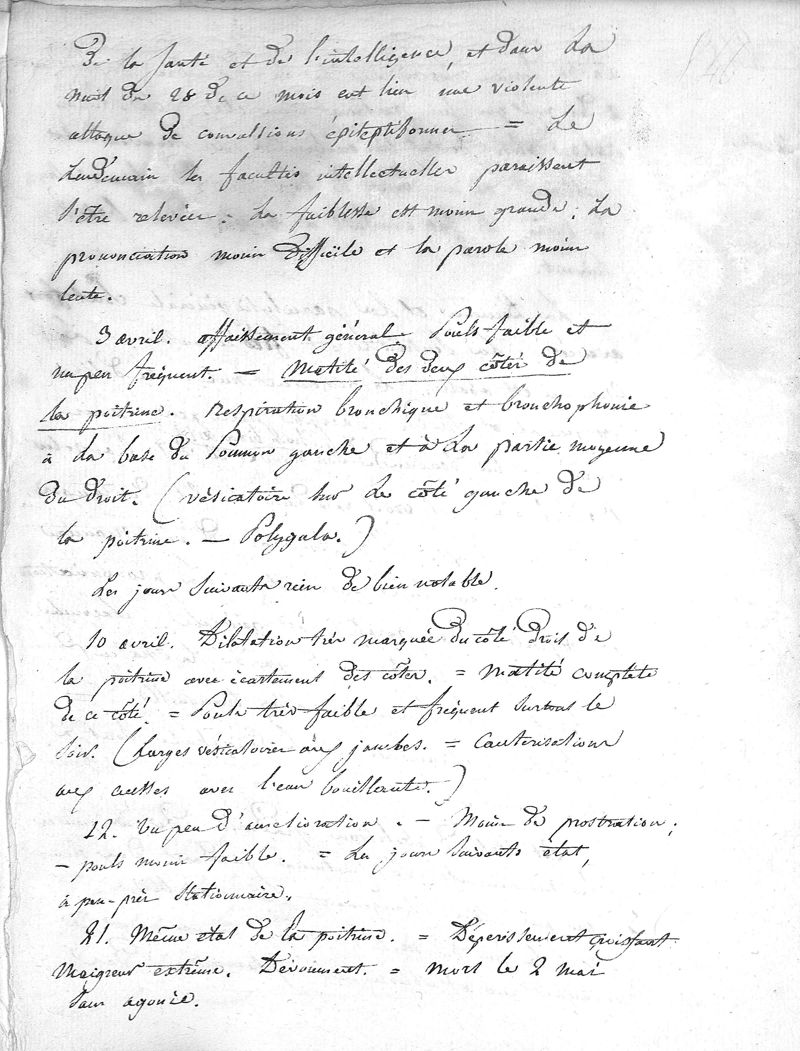 De la santé et de l'intelligence, et dans la
nuit du 28 de ce mois eut lieu une violente
attaque de convulsions épileptiformes = Le
lendemain les facultés intellectuelles paraissent
s'être relevées. La faiblesse est moins grande; La
prononciation moins difficile et la parole moins
lente.
3 avril. affaissement général. Pouls faible et
un peu fréquent. = Matité des deux côtés de
la poitrine. Respiration bronchique et bronchophonie
à la base du Poumon gauche et à la partie moyenne
du droit. (vésicatoire sur le côté gauche de
la poitrine. — Polygala.)
Les jours suivants rien de bien notable.
10 avril. Dilatation très marquée du côté droit de
la poitrine avec écartement des côtes. = Matité complète
de ce côté. = Pouls très faible et fréquent surtout le
soir. (Larges vésicatoires aux jambes. = Cautérisations
aux cuisses avec l'eau bouillante.)
12. Un peu d'amélioration. — Moins de prostration;
— pouls moins faible. = Les jours suivants état,
à peu-près stationnaire.
21. Même état de la poitrine. = Dépérissement croissant
Maigreur extrême. Dévoiement. = Mort le 2 mai
sans agonie.